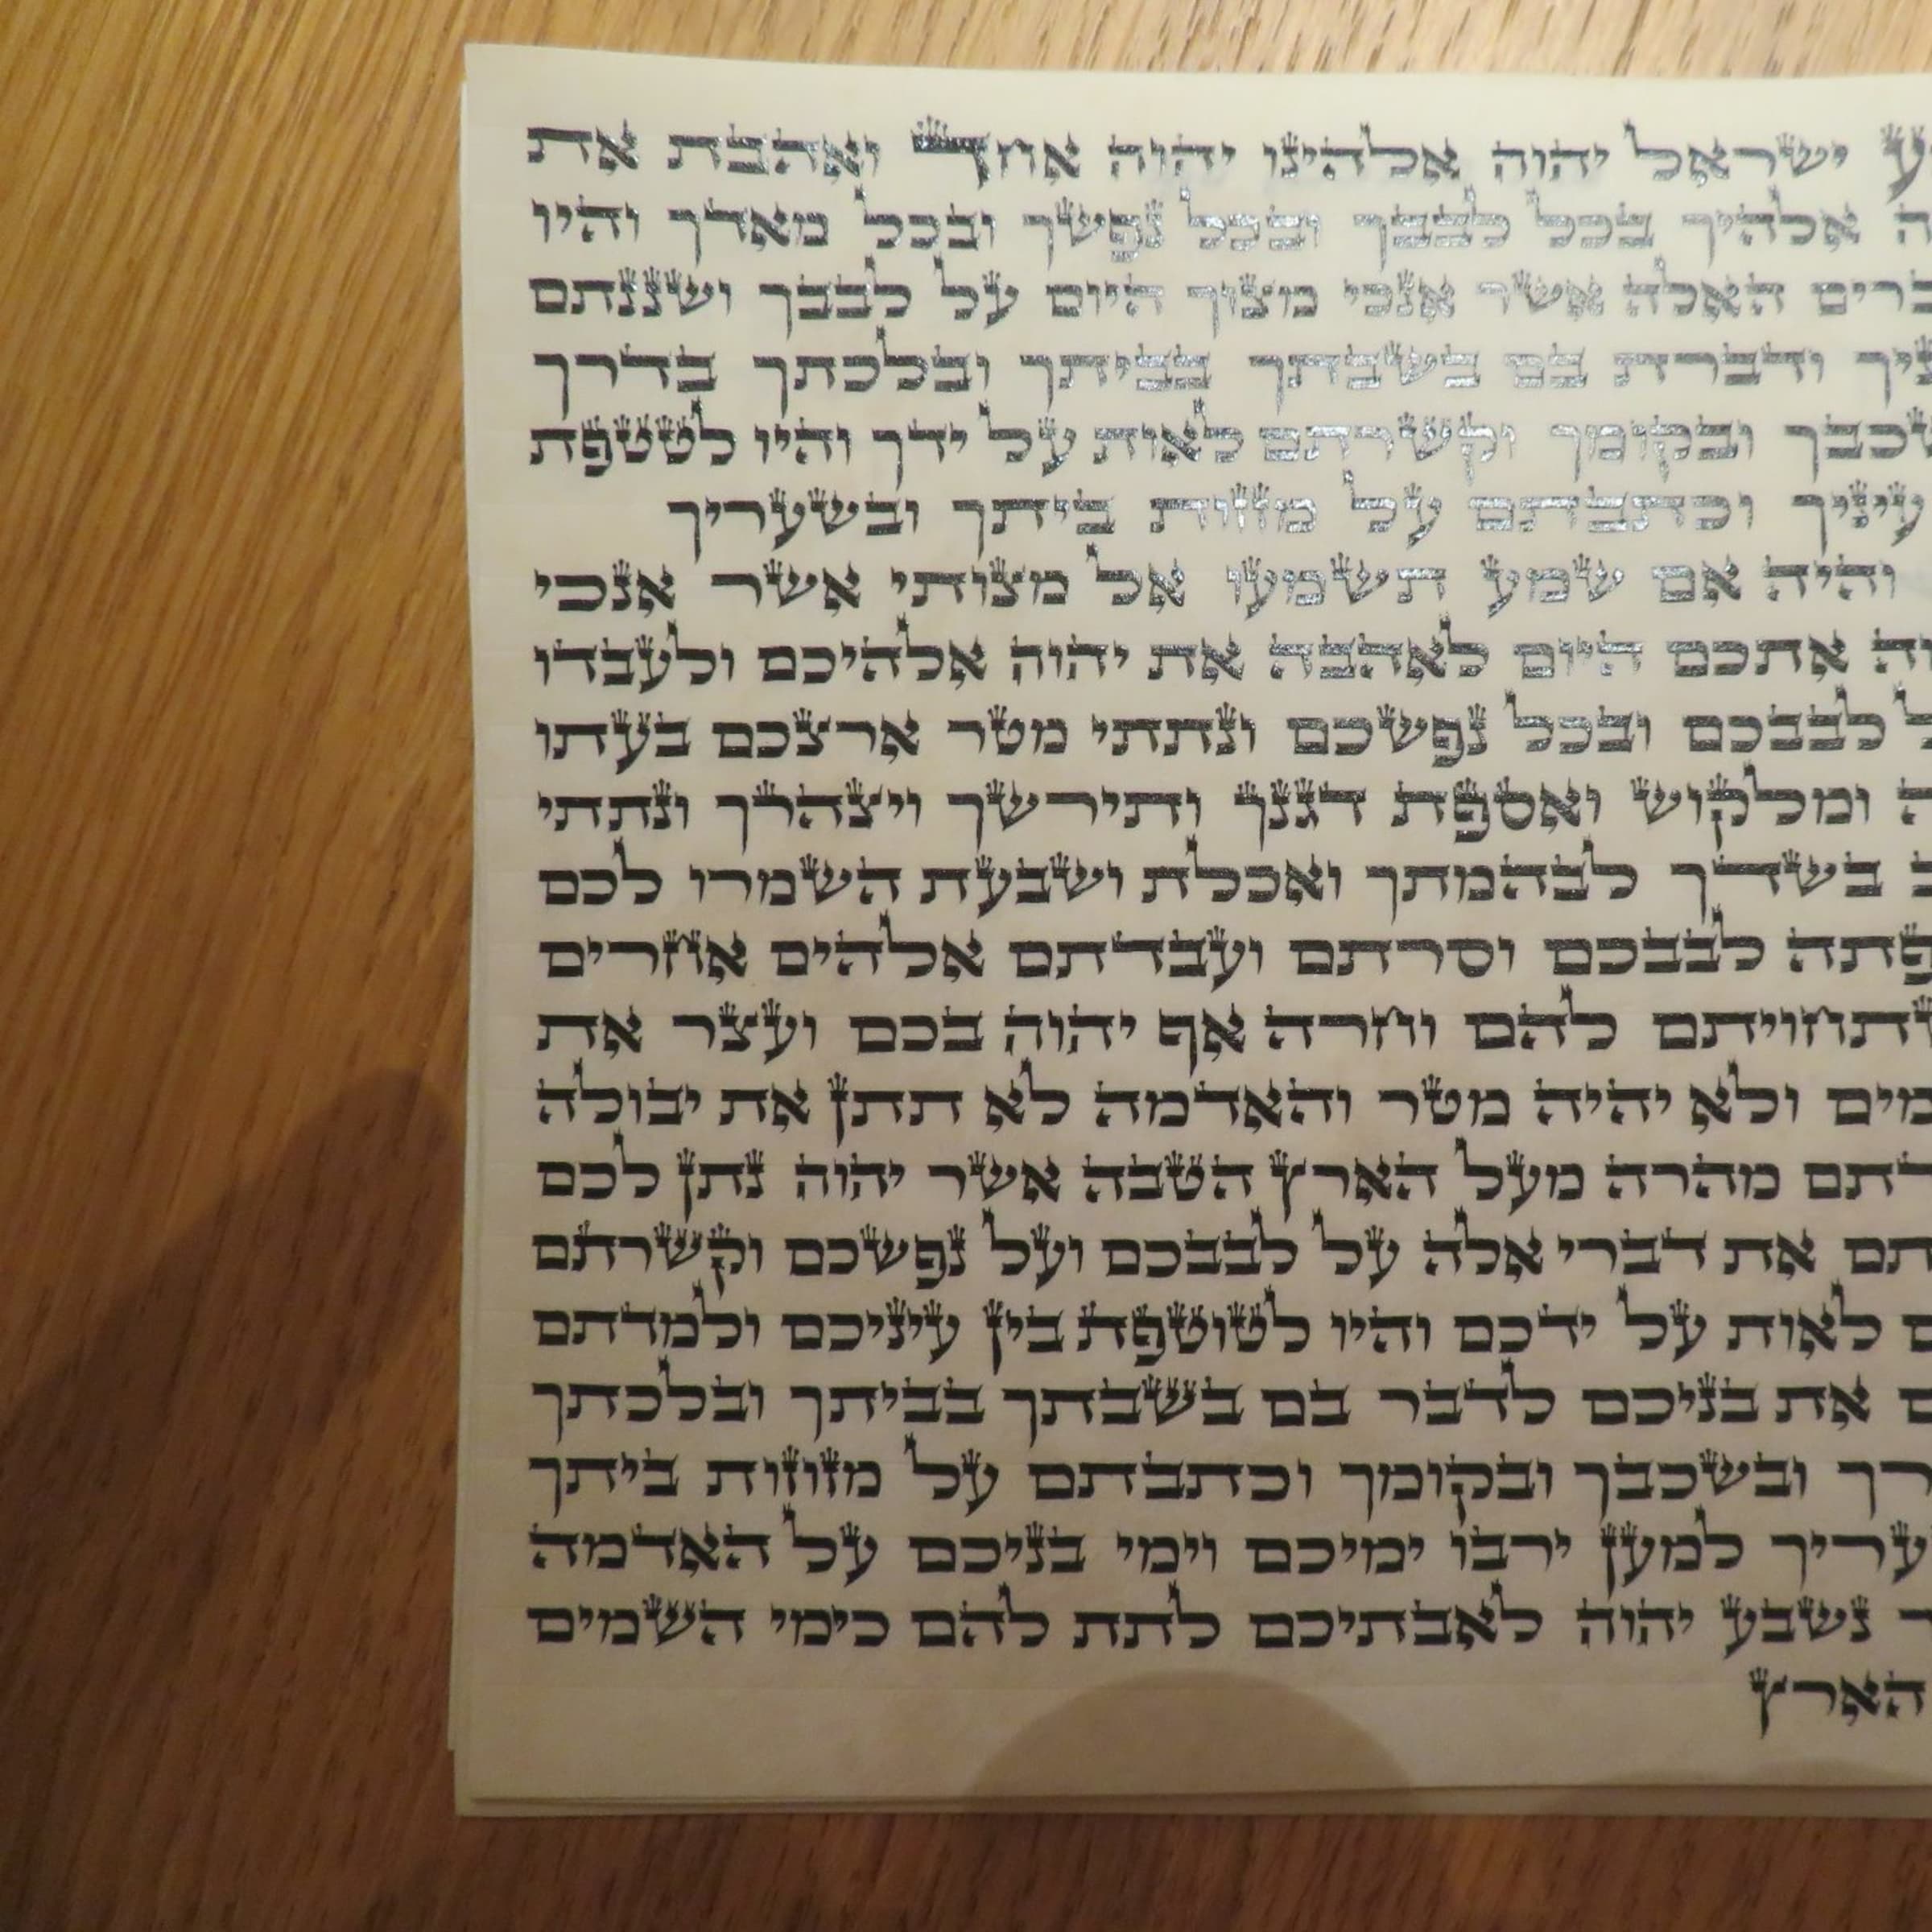 ע ישראל יהוה אלהינו יהוה אחד ואהבת את
ה אלהיך בכל לבבך ובכל נפשך ובכל מאדך והיו
ברים האלה אשר אנכי מצוך היום על לבבך ושננתם
יך ודברת בם בשבתך בביתך ובלכתך בדרך
כבך ובקומך וקשרתם לאות על ידך והיו לטטפת
עיניך וכתבתם על מזזות ביתך ובשעריך
והיה אם שמע תשמעו אל מצותי אשר אנכי
וה אתכם היום לאהבה את יהוה אלהיכם ולעבדו
ל לבבכם ובכל נפשכם ונתתי מטר ארצכם בעתו
ה ומלקוש ואספת דגנך ותירשך ויצהרך ונתתי
ב בשדך לבהמתך ואכלת ושבעת השמרו לכם
פתה לבבכם וסרתם ועבדתם אלהים אחרים
תחויתם להם וחרה אף יהוה בכם ועצר את
מים ולא יהיה מטר והאדמה לא תתן את יבולה
דתם מהרה מעל הארץ הטבה אשר יהוה נתן לכם
תם את דברי אלה על לבבכם ועל נפשכם וקשרתם
ם לאות על ידכם והיו לטוטפת בין עיניכם ולמדתם
ם את בניכם לדבר בם בשבתך בביתך ובלכתך
רך ובשכבך ובקומך וכתבתם על מזוזות ביתך
עריך למען ירבו ימיכם וימי בניכם על האדמה
ר נשבע יהוה לאבתיכם לתת להם כימי השמים
הארץ